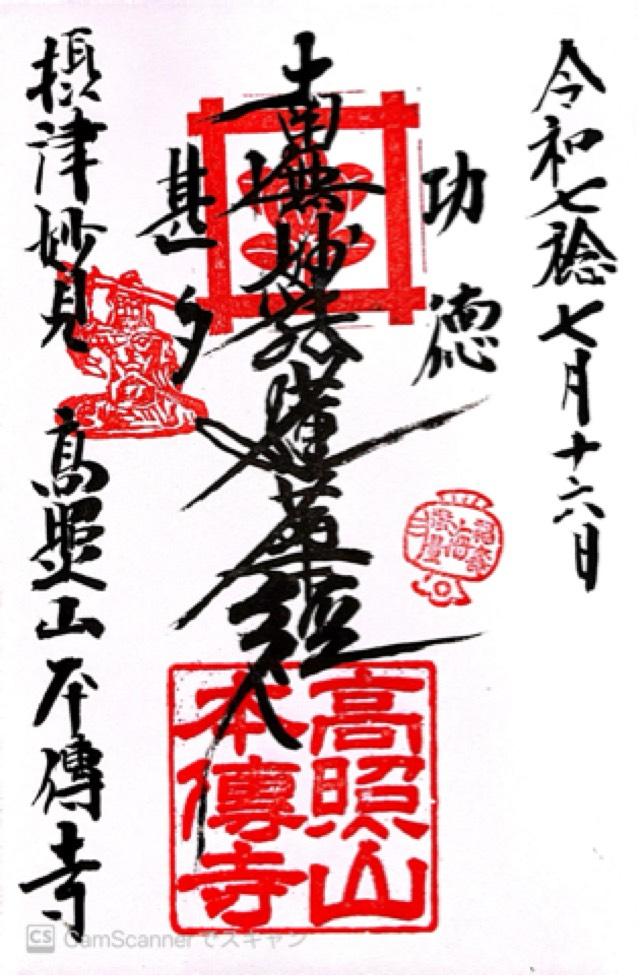 令和七稔七月十六日
功德
南無妙法蓮華經
甚多
摂津妙見 高照山 本傳寺
高照山
本傳寺
CS CamScannerでスキャン